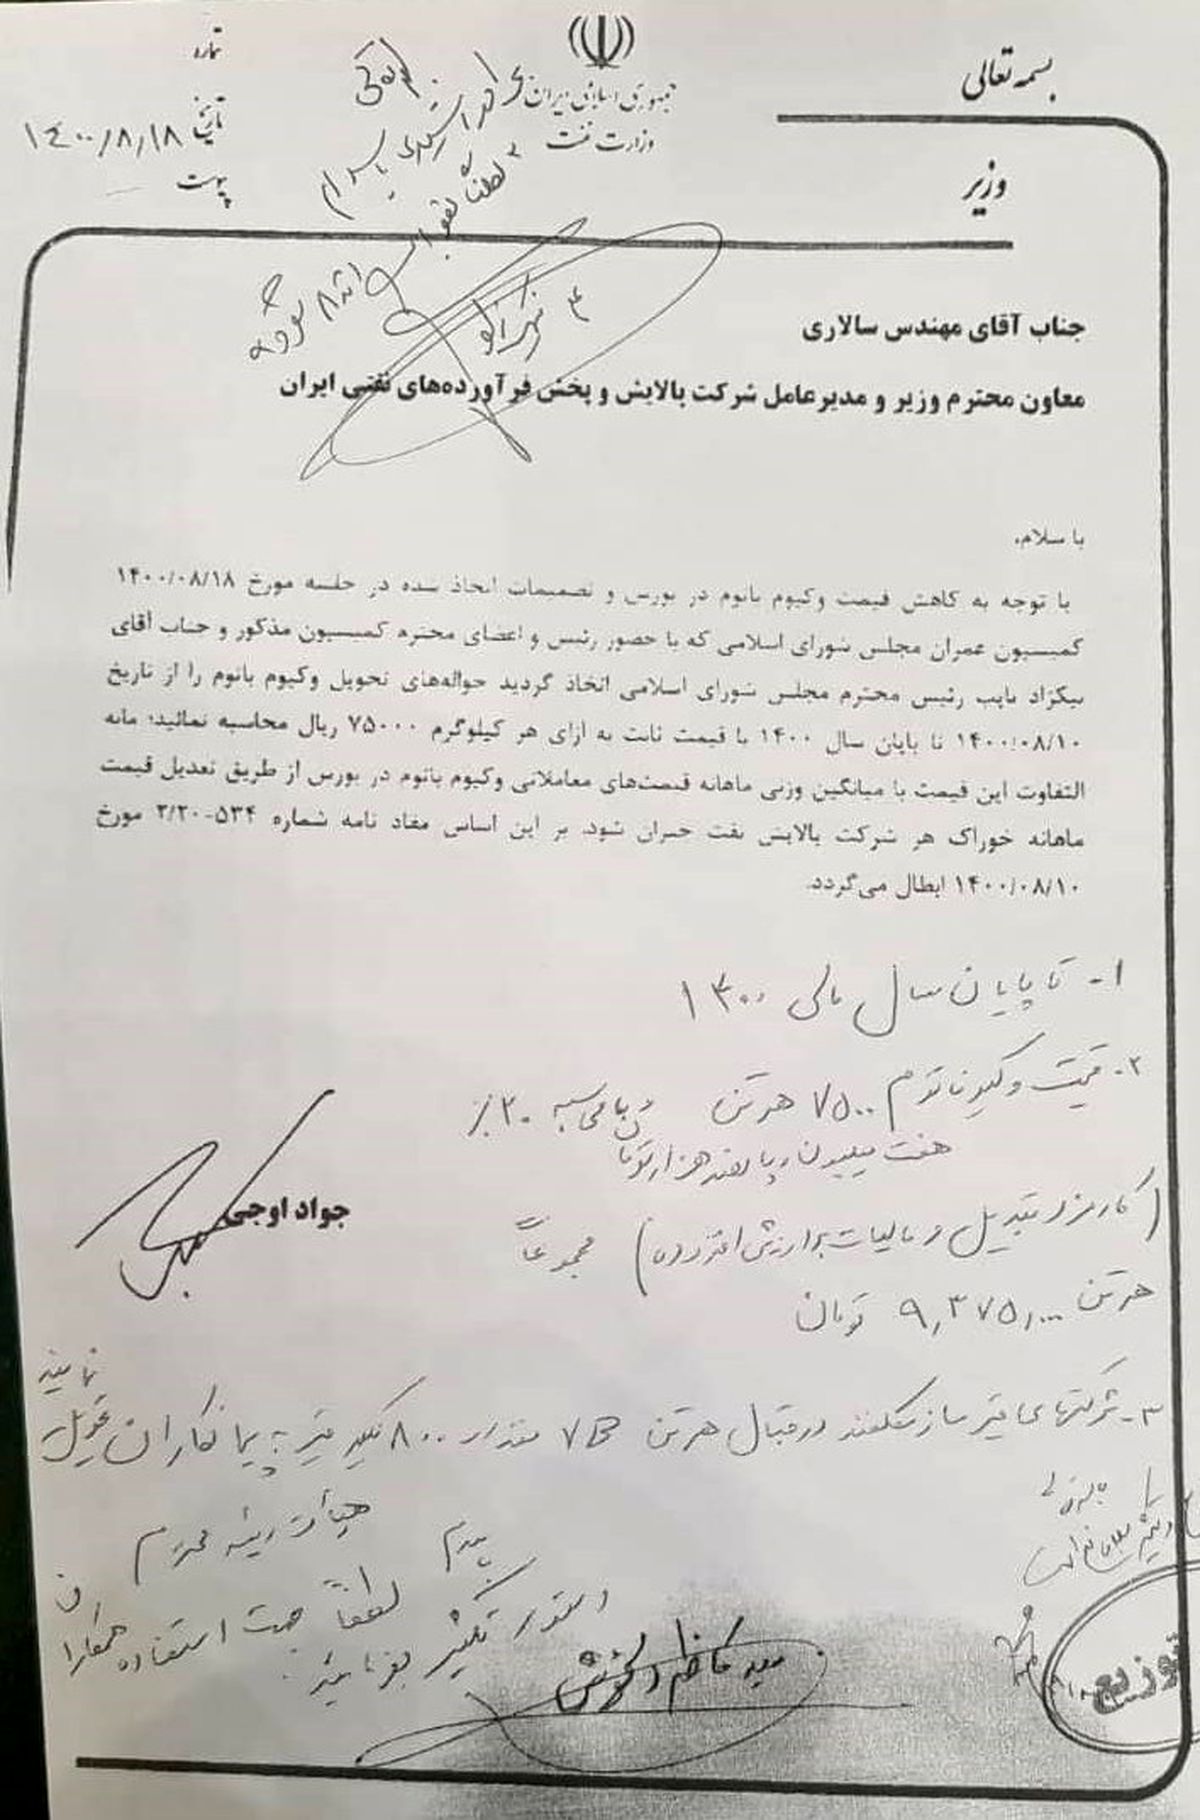 بسمه تعالی
جمهوری اسلامی ایران
وزارت نفت
وزیر
شماره
تاریخ ۱۴۰۰/۸/۱۸
پیوست
جناب آقای مهندس سالاری
معاون محترم وزیر و مدیرعامل شرکت پالایش و پخش فرآورده‌های نفتی ایران
با سلام،
با توجه به کاهش قیمت وکیوم باتوم در بورس و تصمیمات اتخاذ شده در جلسه مورخ ۱۴۰۰/۰۸/۱۸
کمیسیون عمران مجلس شورای اسلامی که با حضور رئیس و اعضای محترم کمیسیون مذکور و جناب آقای
نیکزاد نایب رئیس محترم مجلس شورای اسلامی اتخاذ گردید حواله‌های تحویل وکیوم باتوم را از تاریخ
۱۴۰۰/۰۸/۱۰ تا پایان سال ۱۴۰۰ با قیمت ثابت به ازای هر کیلوگرم ۷۵۰۰۰ ریال محاسبه نمائید؛ مابه
التفاوت این قیمت با میانگین وزنی ماهانه قیمت‌های معاملاتی وکیوم باتوم در بورس از طریق تعدیل قیمت
ماهانه خوراک هر شرکت پالایش نفت جبران شود. بر این اساس مفاد نامه شماره ۵۳۴-۲/۲۰ مورخ
۱۴۰۰/۰۸/۱۰ ابطال می‌گردد.
۱- تا پایان سال مالی ۱۴۰۰
۲- قیمت وکیوم باتوم ۷۵۰۰ هر تن
هفت میلیون و پانصد هزار تومان
جواد اوجی
(کارمزد تبدیل و مالیات بر ارزش افزوده) مجموعاً
هر تن ۹,۳۷۵,۰۰۰ تومان
۳- شرکتهای قیر ساز مکلفند در قبال هر تن مقدار ۸۰۰ کیلو قیر به پیمانکاران تحویل
نمایند
هیأت رئیسه محترم
لطفاً جهت استفاده همکاران
دستور تکثیر بفرمائید.
سید کاظم دلخوش
توزیع